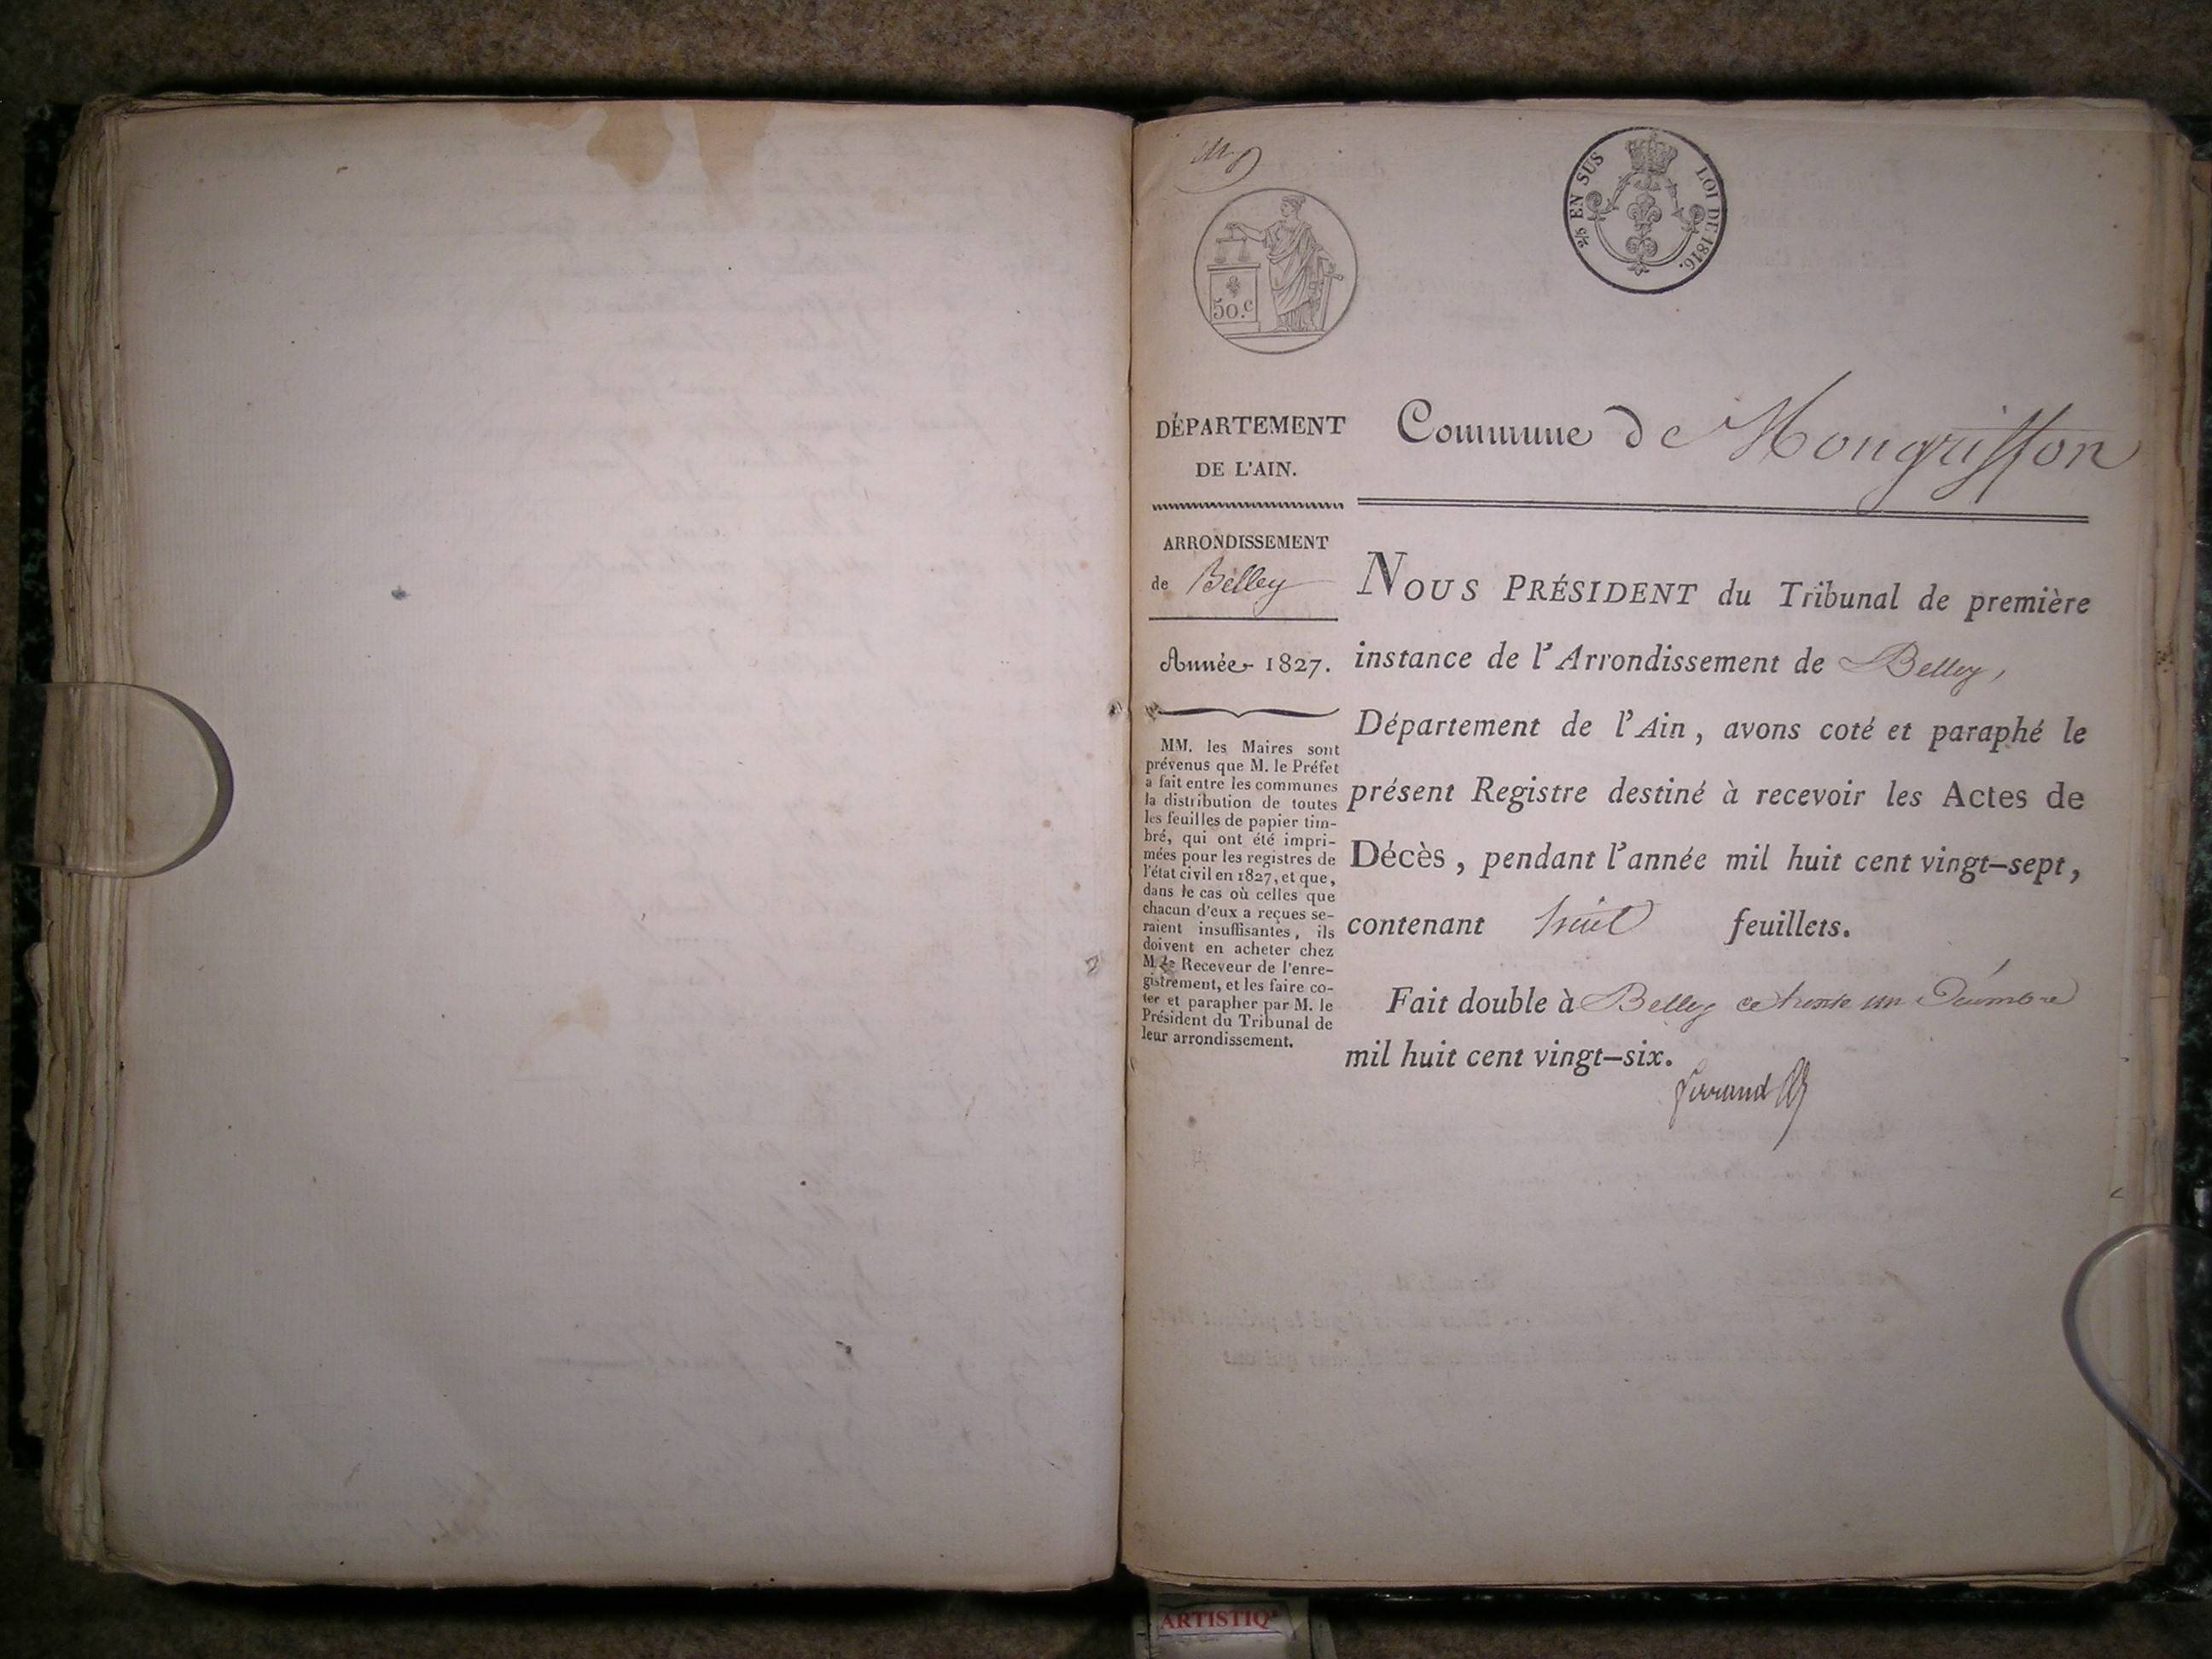 2/5 EN SUS LOI DE 1816.
50.c
DÉPARTEMENT
DE L'AIN.
Commune de Mongriffon
ARRONDISSEMENT
de Belley
Année 1827.
MM. les Maires sont
prévenus que M. le Préfet
a fait entre les communes
la distribution de toutes
les feuilles de papier tim-
bré, qui ont été impri-
mées pour les registres de
l'état civil en 1827, et que,
dans le cas où celles que
chacun d'eux a reçues se-
raient insuffisantes, ils
doivent en acheter chez
M. le Receveur de l'enre-
gistrement, et les faire co-
ter et parapher par M. le
Président du Tribunal de
leur arrondissement.
NOUS PRÉSIDENT du Tribunal de première
instance de l'Arrondissement de Belley,
Département de l'Ain, avons coté et paraphé le
présent Registre destiné à recevoir les Actes de
Décès, pendant l'année mil huit cent vingt-sept,
contenant huit feuillets.
Fait double à Belley ce trente un Décembre
mil huit cent vingt-six.
ARTISTIQ